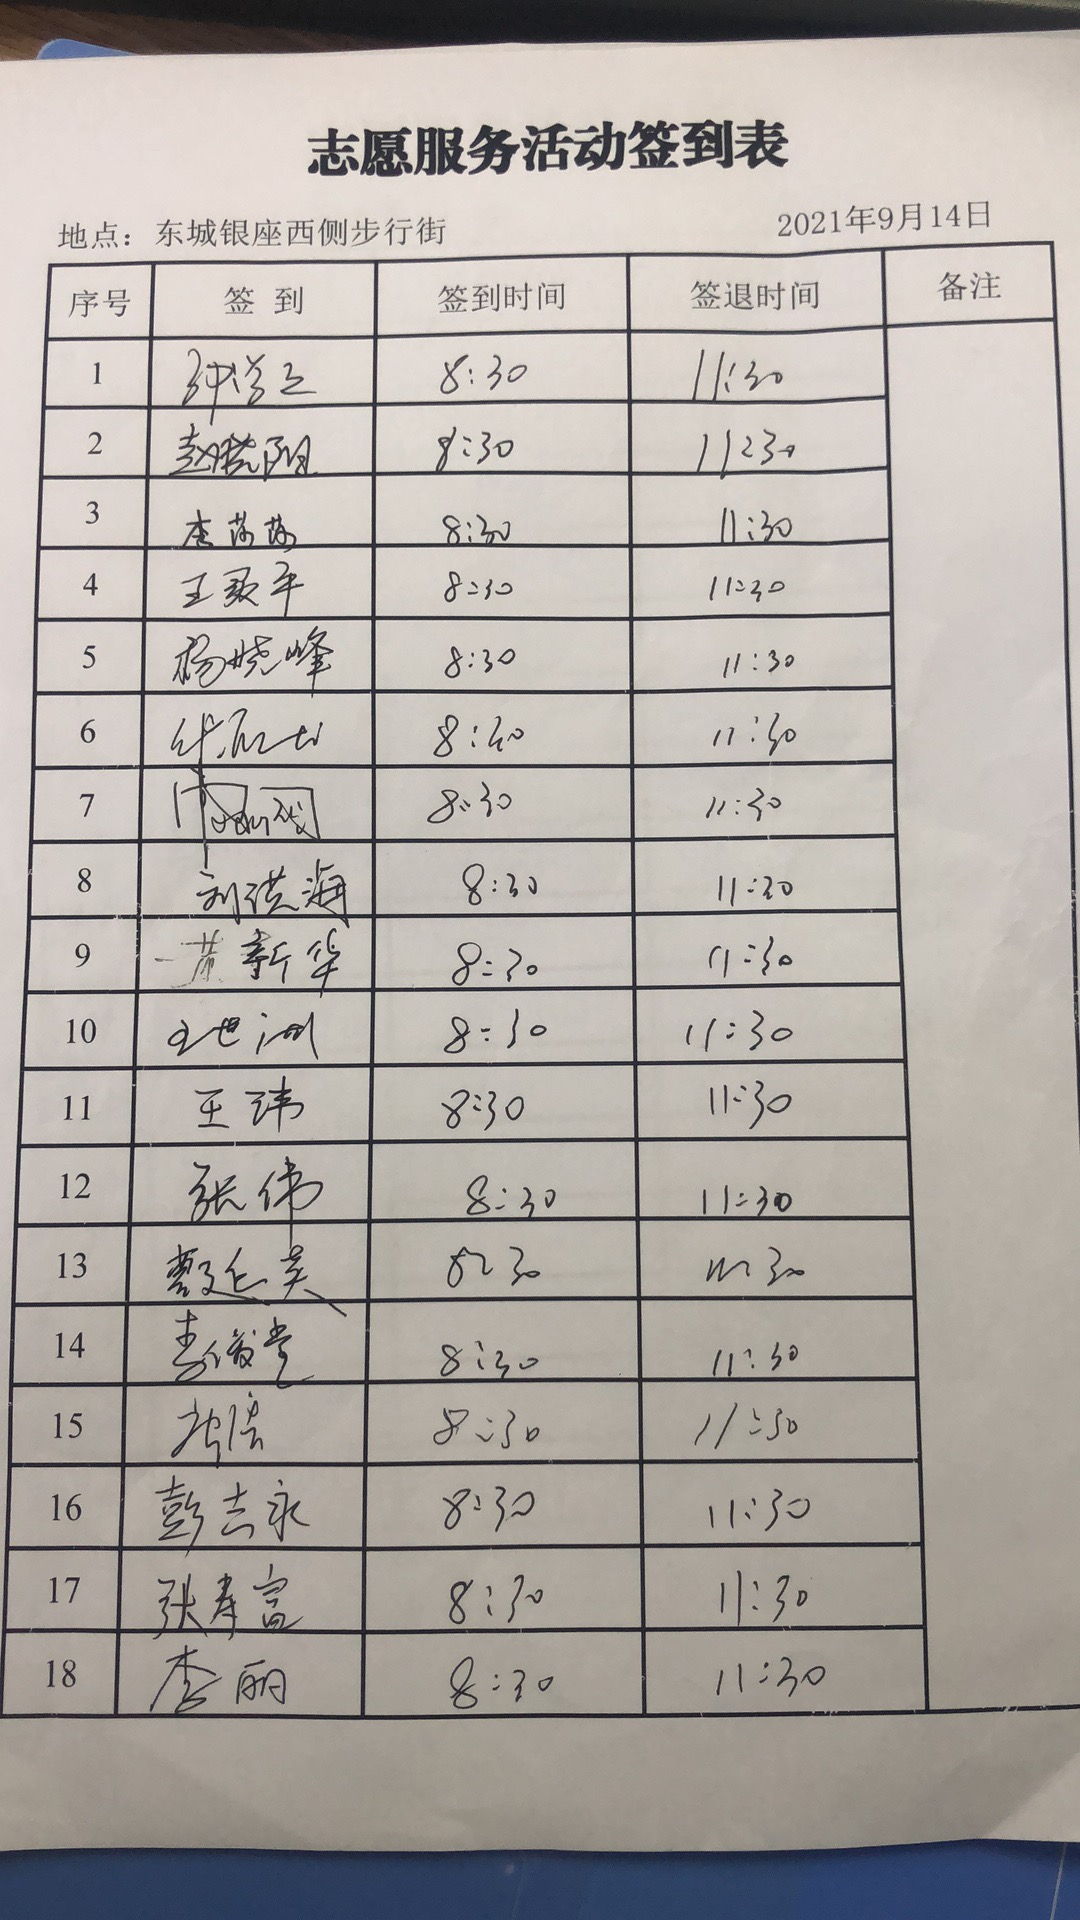 志愿服务活动签到表
地点：东城银座西侧步行街 2021年9月14日
序号 签 到 签到时间 签退时间 备注
1 8:30 11:30
2 赵晓阳 8:30 11:30
3 李茜茜 8:30 11:30
4 王爱平 8:30 11:30
5 杨晓峰 8:30 11:30
6 8:30 11:30
7 8:30 11:30
8 刘洪海 8:30 11:30
9 黄新华 8:30 11:30
10 王世洲 8:30 11:30
11 王玮 8:30 11:30
12 张伟 8:30 11:30
13 8:30 11:30
14 李俊堂 8:30 11:30
15 8:30 11:30
16 彭志永 8:30 11:30
17 张寿富 8:30 11:30
18 李丽 8:30 11:30